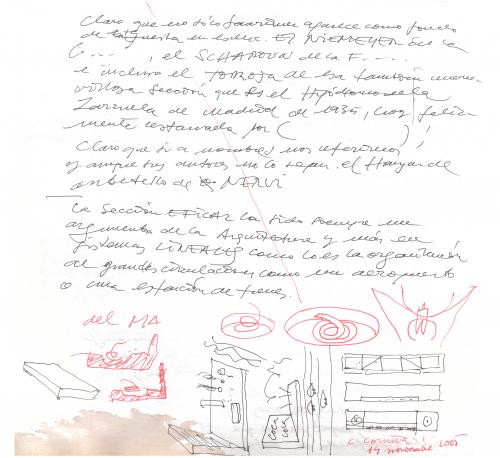 Claro que no sólo Saarinen aparece como fondo
de esta en El NIEMEYER de la
C . . . . , el SCHAROUN de la F . . . .
e incluso el TORROJA de esa también mara-
villosa sección que es el Hipódromo de la
Zarzuela de Madrid de 1935, hoy feliz-
mente restaurada por ( ) !
Claro que si a nombres nos referimos,
y aunque sus autores no lo sepan. el Hangar de
de NERVI
La Sección EFICAZ ha sido siempre un
argumento de la Arquitectura y más en
sistemas LINEALES como lo es la organización
de grandes circulaciones como un aeropuerto
o una estación de trenes.
del MA
COCA
COLA
14 noviembre 2005